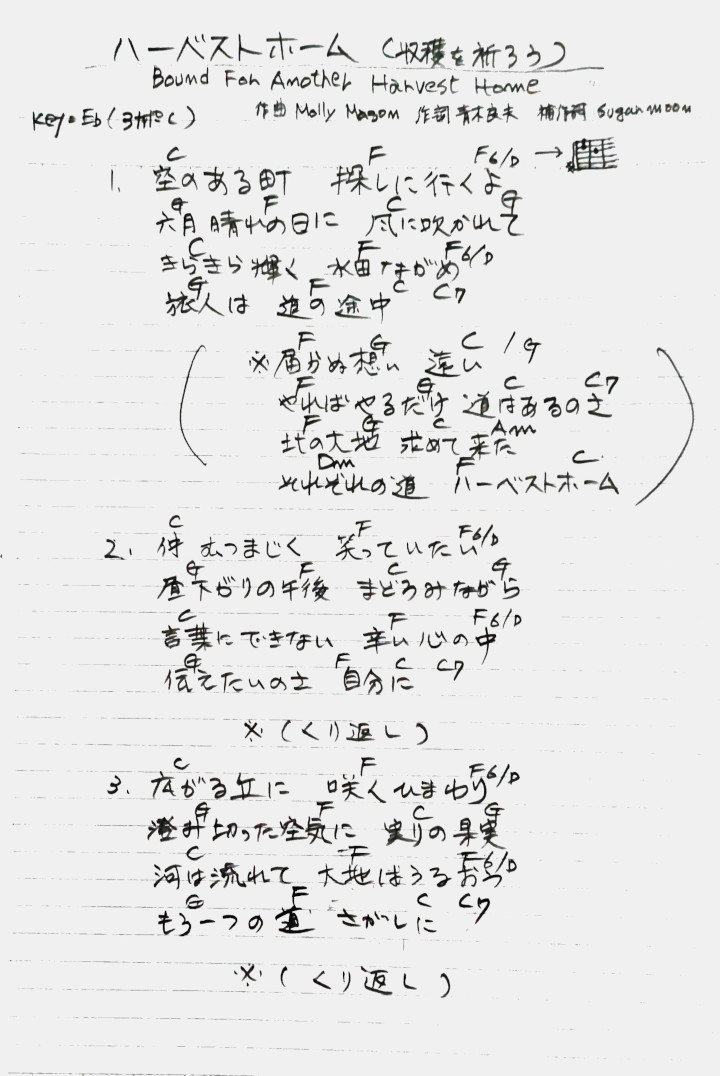 ハーベストホーム (収穫を祈ろう)
Bound For Another Harvest Home
Key=Eb (3カポC) 作曲 Molly Mason 作詞 青木良夫 補作詞 Sugar moon
C F F6/D →
1. 空のある町 探しに行くよ
G F C G
六月晴れの日に 風に吹かれて
C F F6/D
きらきら輝く 水田ながめ
G F C C7
旅人は 道の途中
F G C /G
※届かぬ想い 遠い
F G C C7
やればやるだけ 道はあるのさ
F G C Am
北の大地 求めて来た
Dm F C
それぞれの道 ハーベストホーム
C F F6/D
2. 仲むつまじく 笑っていたい
G F C G
昼下がりの午後 まどろみながら
C F F6/D
言葉にできない 辛い心の中
G F C C7
伝えたいのさ 自分に
※(くり返し)
C F F6/D
3. 広がる丘に 咲くひまわり
G F C G
澄み切った空気に 実りの果実
C F F6/D
河は流れて 大地はうるおう
G F C C7
もう一つの道 さがしに
※(くり返し)